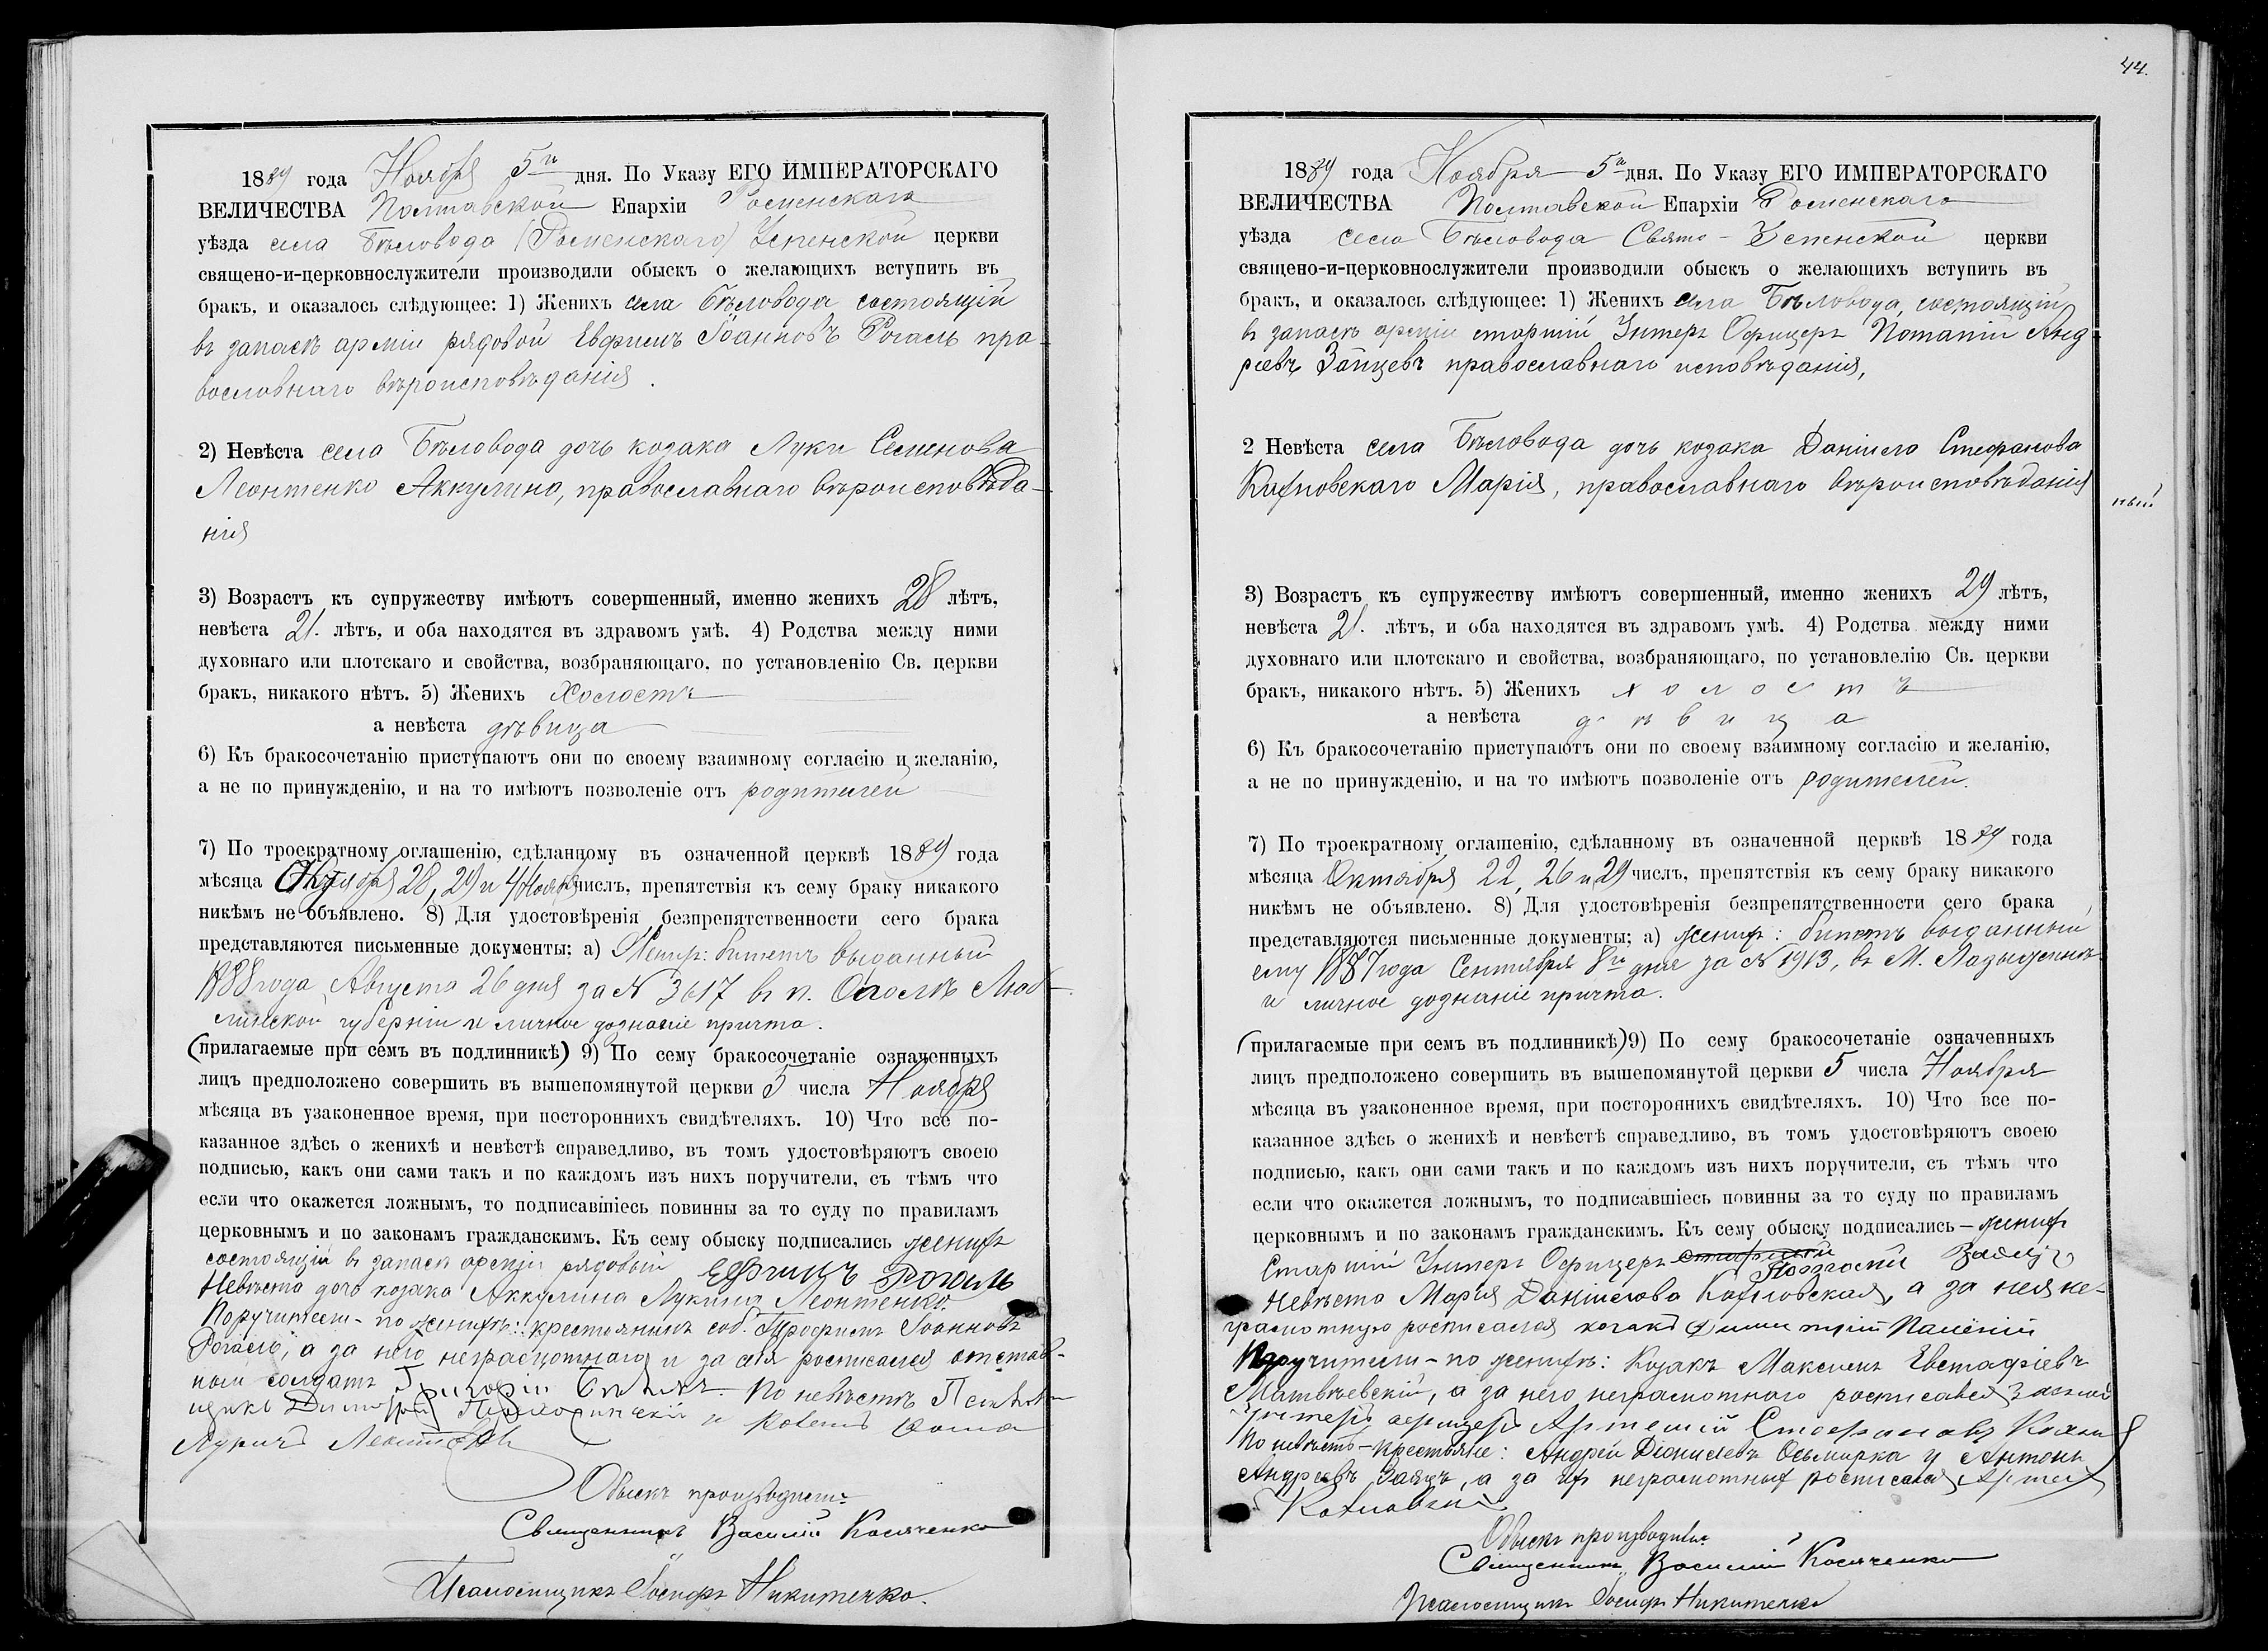 1889 года Ноября 5го дня. По Указу ЕГО ИМПЕРАТОРСКАГО
ВЕЛИЧЕСТВА Полтавской Епархіи Роменскаго
уѣзда села Бѣловода (Роменскаго) Успенской церкви
священо-и-церковнослужители производили обыскъ о желающихъ вступить въ
бракъ, и оказалось слѣдующее: 1) Женихъ села Бѣловода состоящій
въ запасѣ арміи рядовой Евфимъ Іоанновъ Рогаль пра-
вославнаго вѣроисповѣданія.
2) Невѣста села Бѣловода дочь козака Луки Семенова
Леонтенко Аккулина, православнаго вѣроисповѣда-
нія
3) Возрастъ къ супружеству имѣютъ совершенный, именно женихъ 28 лѣтъ,
невѣста 21. лѣтъ, и оба находятся въ здравомъ умѣ. 4) Родства между ними
духовнаго или плотскаго и свойства, возбраняющаго. по установленію Св. церкви
бракъ, никакого нѣтъ. 5) Женихъ Холостъ
а невѣста дѣвица
6) Къ бракосочетанію приступаютъ они по своему взаимному согласію и желанію,
а не по принужденію, и на то имѣютъ позволеніе отъ родителей
7) По троекратному оглашенію, сдѣланному въ означенной церквѣ 1889 года
мѣсяца Октября 28, 29 и 4 Ноября числъ, препятствія къ сему браку никакого
никѣмъ не объявлено. 8) Для удостовѣренія безпрепятственности сего брака
представляются письменные документы; а) Жених: билетъ выданный
1888 года Августа 26 дня за № 3617 въ п. Люб-
линской губерніи и личное дознаніе причта.
(прилагаемые при семъ въ подлинникѣ) 9) По сему бракосочетаніе означенныхъ
лицъ предположено совершить въ вышепомянутой церкви 5 числа Ноября
мѣсяца въ узаконенное время, при постороннихъ свидѣтеляхъ. 10) Что все по-
казанное здѣсь о женихѣ и невѣстѣ справедливо, въ томъ удостовѣряютъ своею
подписью, какъ они сами такъ и по каждомъ изъ нихъ поручители, съ тѣмъ что
если что окажется ложнымъ, то подписавшіесь повинны за то суду по правиламъ
церковнымъ и по законамъ гражданскимъ. Къ сему обыску подписались женихъ
состоящій въ запасѣ арміи рядовый Рогаль
Невѣста дочь козака Аккулина Лукина Леонтенко.
Поручители - по женихѣ: крестьянинъ соб. Трофимъ Іоанновъ
Рогаль, а за него неграмотнаго и за себя росписался отстав-
ной солдатъ Григорій По невѣстѣ
Дмитрій и Фома
Лукичъ
Обыскъ производили:
Священникъ Василій Косяченко
Псаломщикъ Іосифъ Никитенко.
44.
1889 года Ноября 5го дня. По Указу ЕГО ИМПЕРАТОРСКАГО
ВЕЛИЧЕСТВА Полтавской Епархіи Роменскаго
уѣзда село Бѣловода Свято-Успенской церкви
священо-и-церковнослужители производили обыскъ о желающихъ вступить въ
бракъ, и оказалось слѣдующее: 1) Женихъ села Бѣловода, состоящій
въ запасѣ арміи старшій Унтеръ Офицеръ Потапій Анд
ріевъ Заицевъ православнаго исповѣданія,
2 Невѣста села Бѣловода дочь козака Даніила Стефанова
Марія, православнаго вѣроисповѣданія
ный
3) Возрастъ къ супружеству имѣютъ совершенный, именно женихъ 29 лѣтъ,
невѣста 21. лѣтъ, и оба находятся въ здравомъ умѣ. 4) Родства между ними
духовнаго или плотскаго и свойства, возбраняющаго, по установлелію Св. церкви
бракъ, никакого нѣтъ. 5) Женихъ холостъ
а невѣста дѣвица
6) Къ бракосочетанію приступаютъ они по своему взаимному согласію и желанію,
а не по принужденію, и на то имѣютъ позволеніе отъ родителей.
7) По троекратному оглашенію, сдѣланному въ означенной церквѣ 1889 года
мѣсяца Октября 22, 26 и 29 числъ, препятствія къ сему браку никакого
никѣмъ не объявлено. 8) Для удостовѣренія безпрепятственности сего брака
представляются письменные документы; а) жених: билетъ выданный
ему 1887 года Сентября 8го дня за № 1913, въ М.
и личное дознаніе причта.
(прилагаемые при семъ въ подлинникѣ) 9) По сему бракосочетаніе означенныхъ
лицъ предположено совершить въ вышепомянутой церкви 5 числа Ноября
мѣсяца въ узаконенное время, при постороннихъ свидѣтеляхъ. 10) Что все по-
казанное здѣсь о женихѣ и невѣстѣ справедливо, въ томъ удостовѣряютъ своею
подписью, какъ они сами такъ и по каждомъ изъ нихъ поручители, съ тѣмъ что
если что окажется ложнымъ, то подписавшіесь повинны за то суду по правиламъ
церковнымъ и по законамъ гражданскимъ. Къ сему обыску подписались - женихъ
Старшій Унтеръ Офицеръ старшій
Невѣста Марія Даніилова а за нея не-
грамотную росписался козакъ
Поручители - по женихѣ: Козакъ Максимъ Евстафіевъ
Матвѣевскій, а за него неграмотнаго росписался
Унтеръ офицеръ Артемій Стефановъ
По невѣстѣ - крестьяне: Андрей Діонисіевъ Осьмирка и Антонъ
Андреевъ Заяцъ, а за их неграмотных росписался
Обыскъ производили:
Священникъ Василій Косяченко
Псаломщикъ Іосифъ Никитенко